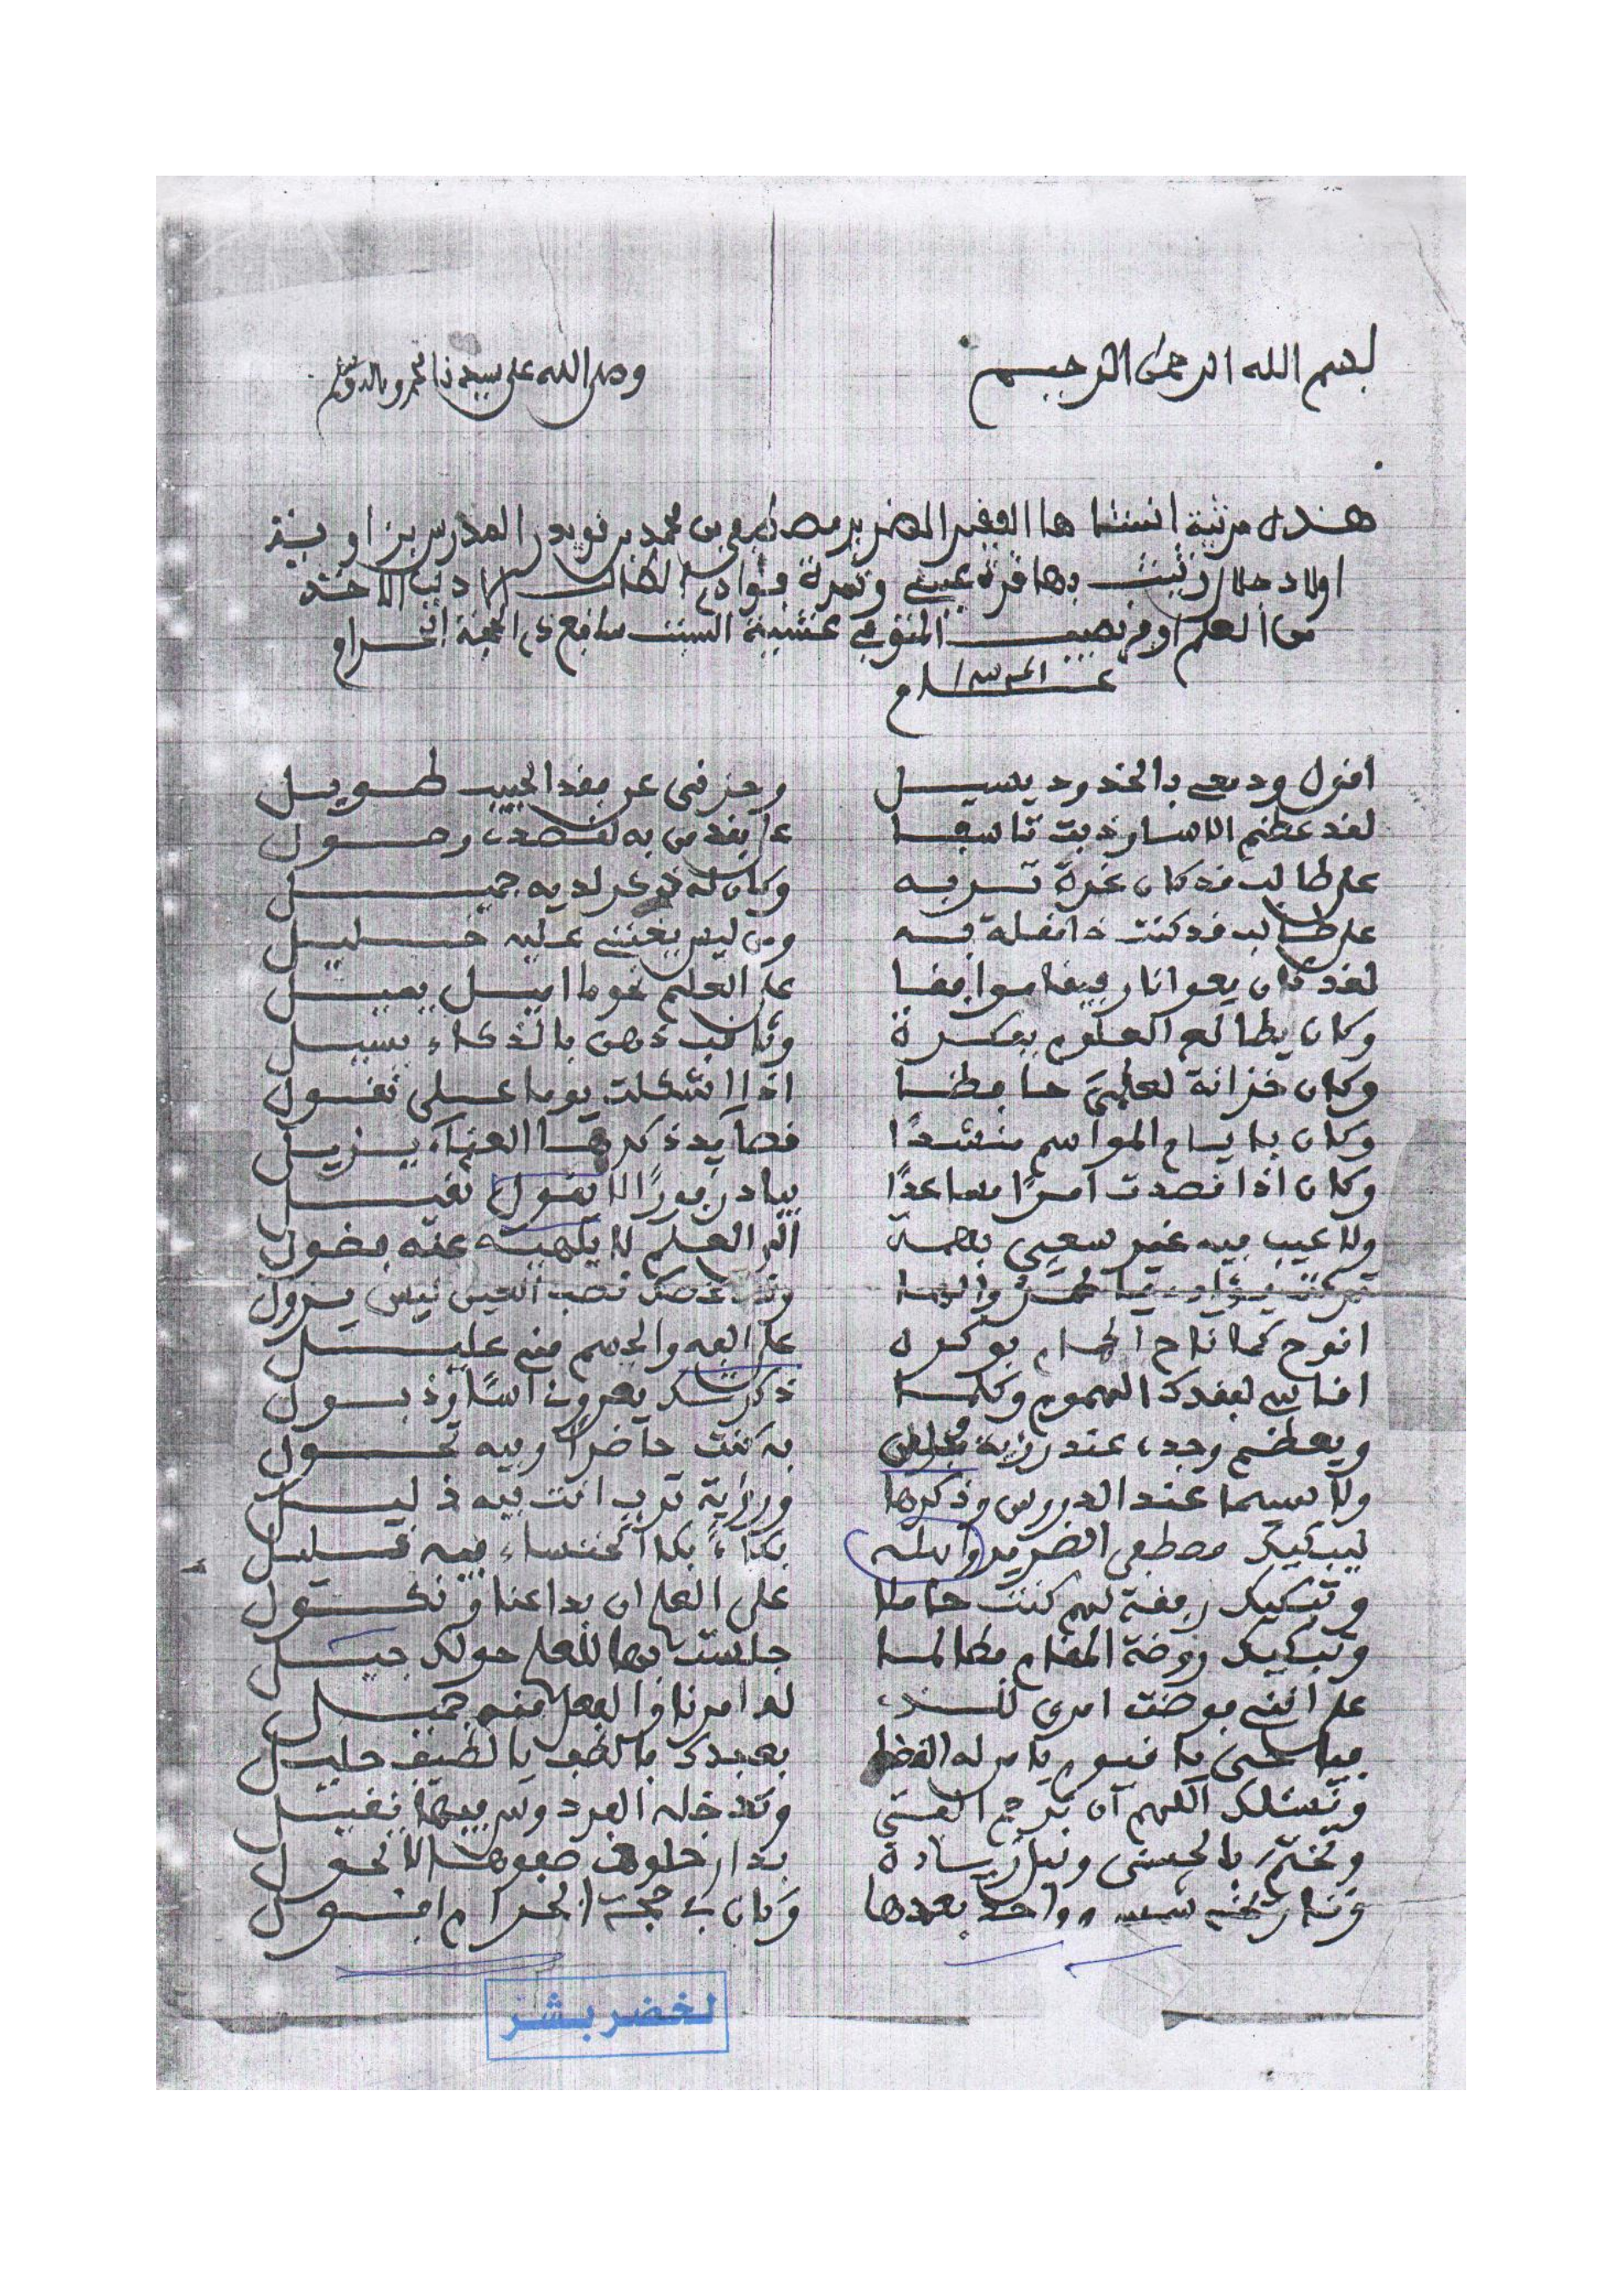 بسم الله الرحمن الرحيم وصلى الله على سيدنا محمد وآله
هذه مرثية انشاها الفقير الضرير مصطفى بن محمد بن قويدر المدرس بزاوية
اولاد جلال رثيت بها قرة عيني وثمرة فوادي الطالب الاديب الاخذ
من العلم اوفر نصيب المتوفى عشية السبت سابع ذي الحجة الحرام
اقول ودمعي بالخدود يسيل وحزني على فقد الحبيب طويل
لقد عظم الاسا وذبت تاسفا على فقد من به لقصدي وصول
على طالب قد كان غرة تربه وكان له فخر لديه جميل
على طالب قد كنت ذا مقلة به ومن ليس يخشى عليه خليل
لقد كان يهوانا رفيقا موافقا على العلم نحو ما اميل يميل
وكان يطالع العلوم بفكرة وثاقب ذهن بالذكاء يسيل
وكان خزانة لعلمي حافظا اذا اشكلت يوما على نقول
وكان بايام المواسم منشدا قصايد ذكرها العناء يزيل
وكان اذا قصدت امرا مساعدا يبادر فورا لا يقول ثقيل
ولا عيب فيه غير سعيي بهمة الى العلم لا يلهيه عنه فضول
وشخصك نصب العين ليس يزول
انوح كما ناح الحمام بوكره على الفه والجسم مني عليل
اقاسي لفقدك الهموم وكلما ذكرتك يعروني اسا وذبول
ويعظم وجدي عند رزية مجلس به كنت حاضرا وفيه تجول
ولا سيما عند الدروس وذكرها ورؤية ترب انت فيه ذليل
ليبكيك مصطفى الضرير واهله بكاء بكا الخنساء فيه قليل
وتبكيك رفقة لهم كنت حاملا على العلم ان بدا عنا ونكول
وتبكيك روضة المقام طالما جلست بها للعلم حولك جيل
على انني فوضت امري للسيد له امرنا والفعل منه جميل
فيا حي يا قيوم يا من له القضا بعبدك فالطف يا لطيف جليل
ونسئلك اللهم ان ترحم الفتى وتدخله الفردوس فيها يقيل
وتختم بالحسنى ونيل زيادة بدار خلود صفوها لا يحول
وكان في حجة الحرام افول
لخضر بشر